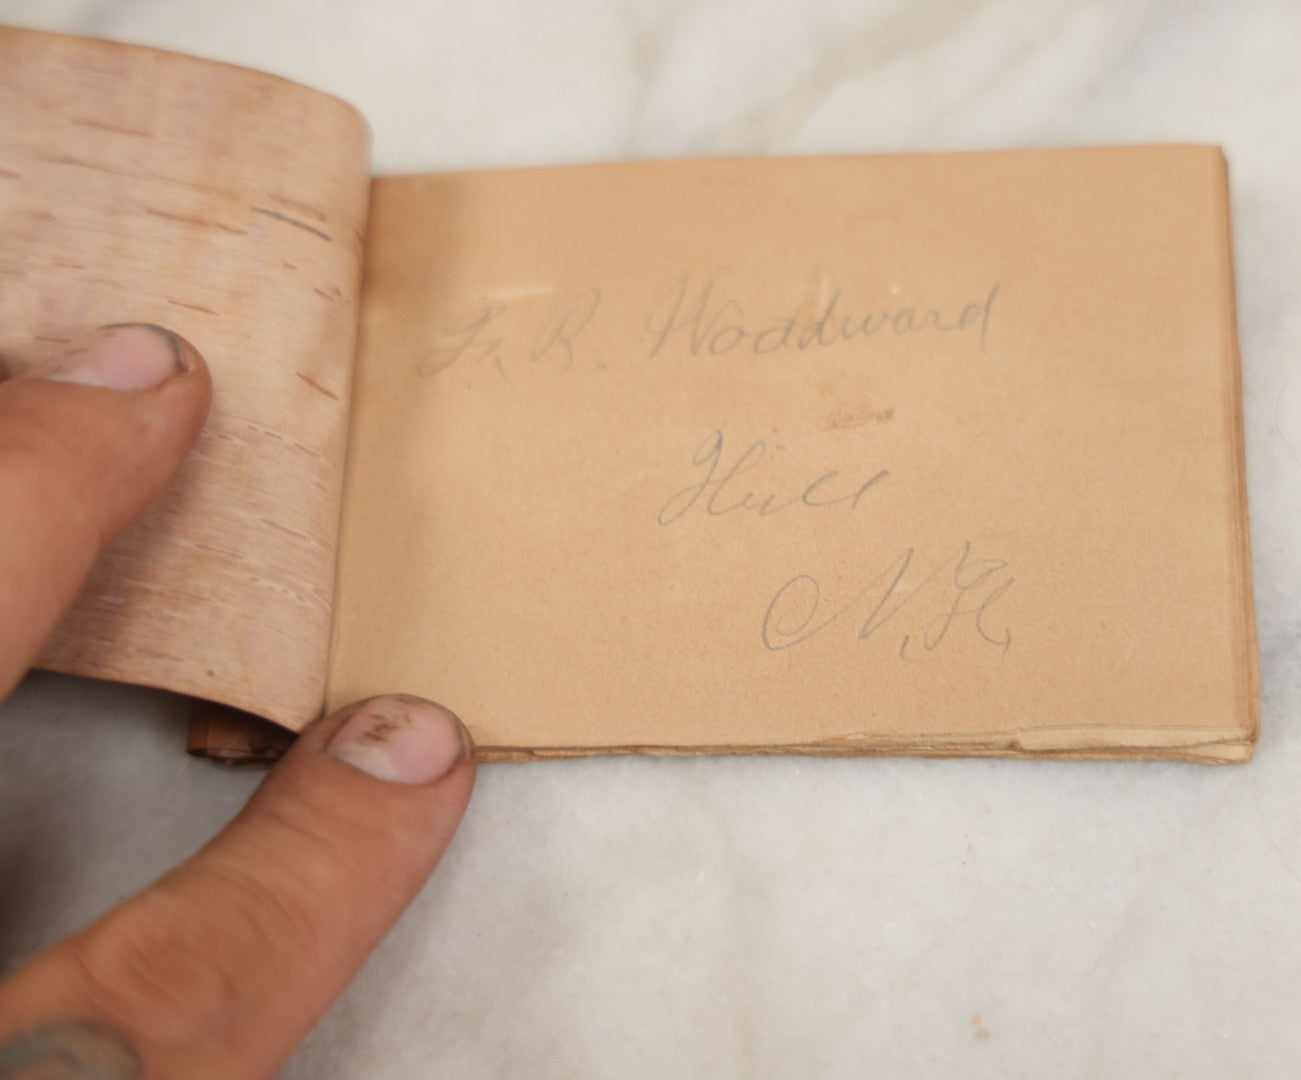 Fr. R. Woodward
Hill
N.H.